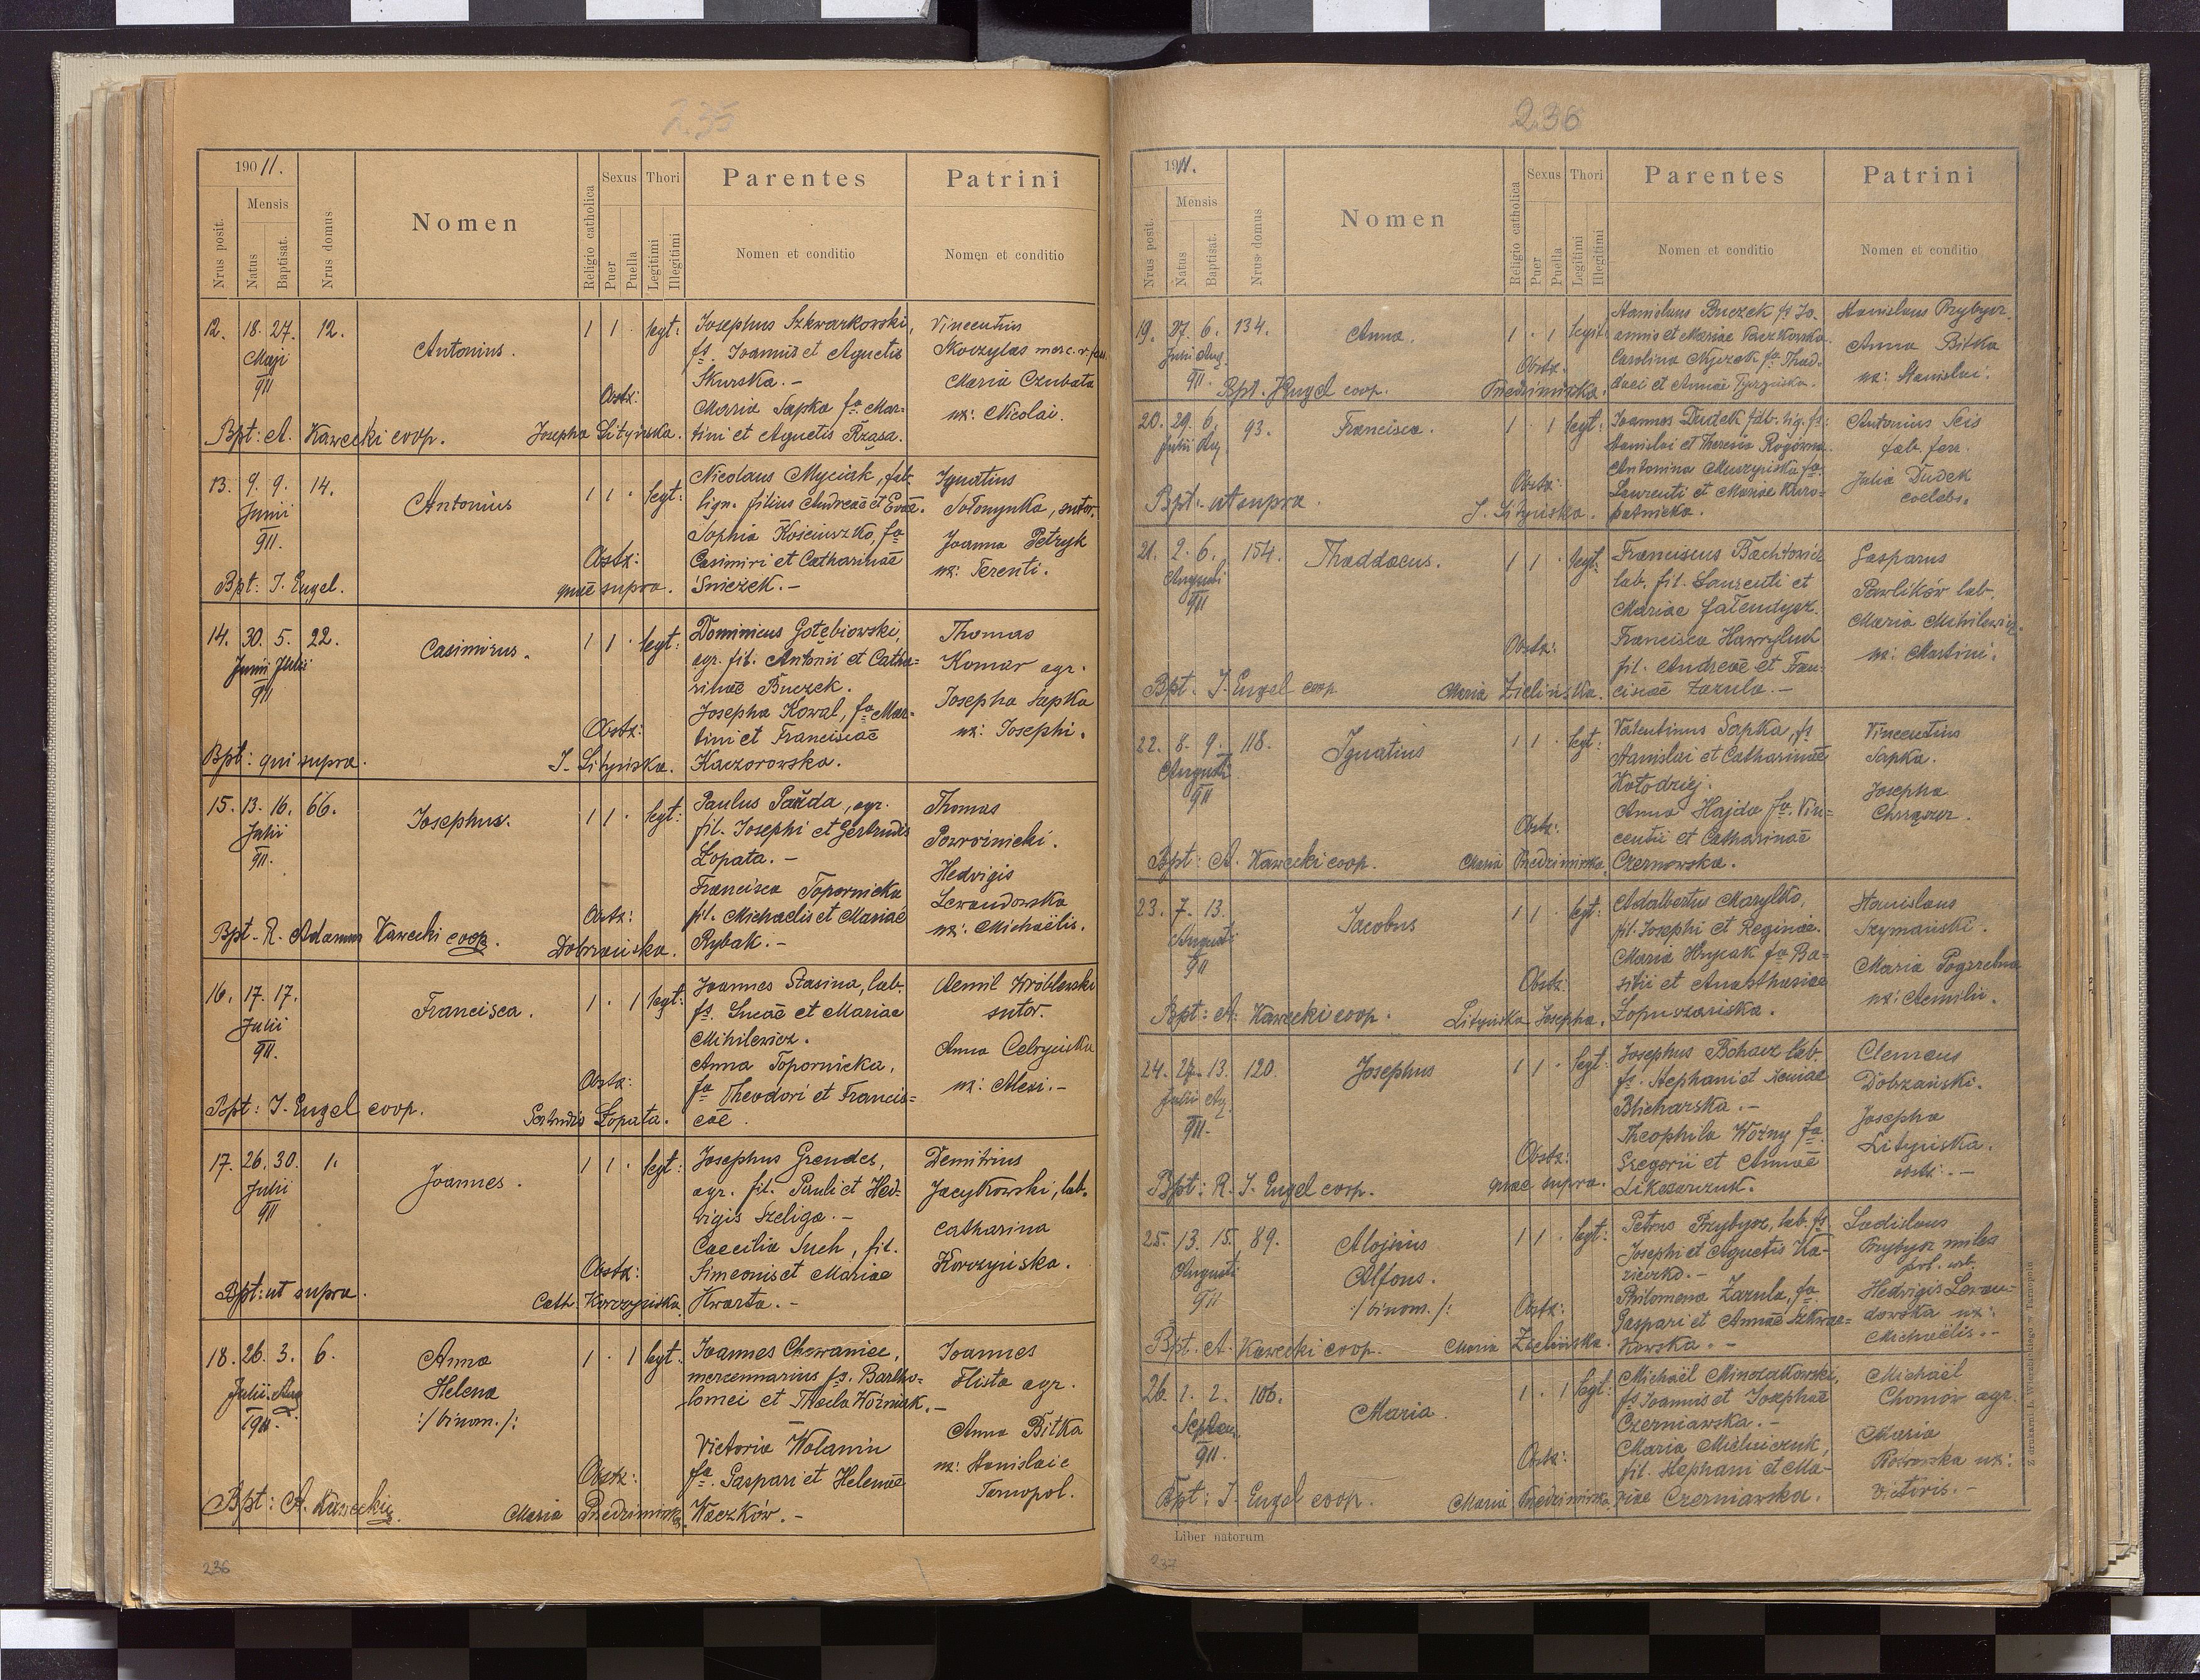 235
190 11.
Nrus posit.
Mensis
Natus
Baptisat.
Nrus domus
Nomen
Religio catholica
Sexus
Puer
Puella
Thori
Legitimi
Illegitimi
Parentes
Nomen et conditio
Patrini
Nomen et conditio
12. 18. 27. 12.
Maji
911
Antonius.
1 1 · legt:
Josephus Szkwarkowski,
fs. Joannis et Agnetis
Skurska. -
Maria Sapka fa Mar-
tini et Agnetis Rząsa.
Vincentius
Skoczylas merc. v. fer.
Maria Czubata
ux: Nicolai.
Obstx:
Bpt: A. Kawecki coop. Josepha Lityńska.
13. 9. 9. 14.
Junii
911.
Antonius
1 1 · legt:
Nicolaus Myciak, fab.
lign. filius Andreae et Evae.
Sophia Kościuszko, fa
Casimiri et Catharinae
Śnieżek. -
Ignatius
Sołonynka, sutor.
Joanna Petryk
ux: Terenti.
Obstx:
Bpt: J. Engel. quae supra.
14. 30. 5. 22.
Junii Julii
911
Casimirus.
1 1 · legt:
Dominicus Gołębiowski,
agr. fil. Antonii et Catha-
rinae Buczek.
Josepha Kowal, fa Mar-
tini et Franciscae
Kaczorowska.
Thomas
Komar agr.
Josepha Sapka
ux: Josephi.
Obstx:
Bpt: qui supra. J. Lityńska.
15. 13. 16. 66.
Julii
911.
Josephus.
1 1 · legt:
Paulus Pażda, agr.
fil. Josephi et Gertrudis
Łopata. -
Francisca Topornicka
fil. Michaelis et Mariae
Rybak. -
Thomas
Powroźnicki.
Hedvigis
Lewandowska
ux: Michaëlis.
Obstx:
Bpt. R. Adamus Kawecki coop. Dobrzańska.
16. 17. 17.
Julii
911.
Francisca.
1 · 1 legt:
Joannes Stasina, lab.
fs. Lucae et Mariae
Mihilewicz.
Anna Topornicka,
fa Theodori et Francis-
cae.
Aemil Wróblewski
sutor.
Anna Celryńska
ux: Alexi. -
Obstx:
Bpt: J. Engel coop. Gertrudis Łopata.
17. 26. 30. 1.
Julii
911
Joannes.
1 1 · legt:
Josephus Grendes,
agr. fil. Pauli et Hed-
vigis Szeliga. -
Caecilia Such, fil.
Simeonis et Mariae
Kwarta. -
Demitrius
Jacykowski, lab.
Catharina
Korczyńska.
Obstx:
Bpt: ut supra. Cath. Korczyńska
18. 26. 3. 6.
Julii. Aug
1911.
Anna
Helena
:/ binom. /:
1 · 1 legt:
Joannes Chowaniec,
mercennarius fs. Bartho-
lomei et Thecla Woźniak. -
Victoria Wolanin
fa. Gaspari et Helenae
Waczków. -
Joannes
Flista agr.
Anna Bitka
ux: Stanislaie
Tarnopol.
Obstx:
Bpt: A. Kawecki. Maria Niedzimirska
236
236
1911.
Nrus posit.
Mensis
Natus
Baptisat.
Nrus domus
Nomen
Religio catholica
Sexus
Puer
Puella
Thori
Legitimi
Illegitimi
Parentes
Nomen et conditio
Patrini
Nomen et conditio
19. 27. 6. 134.
Julii Aug.
911.
Anna.
1 · 1 legit:
Stanislaus Buczek fs Jo-
annis et Mariae Paczkowska.
Carolina Myczek fa Thad-
daei et Annae
Stanislaus Przybysz.
Anna Bitka
ux: Stanislai.
Obstx.
Bpt. J. Engel coop. Niedzimirska.
20. 29. 6. 93.
Julii Aug
Francisca.
1 · 1 legt:
Joannes Dudek fab. lig. fs:
Stanislai et Theresia Rogowna.
Antonina Muszyńska fa
Laurenti et Mariae Kuro-
patnicka.
Antonius Seis
fab. ferr.
Julia Dudek
coelebs.
Obstx:
Bpt. ut supra. J. Lityńska.
21. 2. 6. 154.
Augusti
911
Thaddaeus.
1 1 · legt:
Franciscus Bachtowicz
lab. fil. Laurenti et
Mariae Gałendysz.
Francisca Hawryluk
fil. Andreae et Fran-
ciscae Zazula. -
Gasparus
Pawlików lab.
Maria Mihilewicz
ux: Martini.
Obstx:
Bpt. J. Engel coop. Maria Zielińska.
22. 8. 9. 118.
Augusti
911
Ignatius
1 1 · legt:
Valentinus Sapka, fs
Stanislai et Catharinae
Kołodziej.
Anna Hajda fa. Vin-
centii et Catharinae
Czernowska.
Vincentius
Sapka.
Josepha
Chrząszcz.
Obstx:
Bpt: A. Kawecki coop. Maria Niedzimirska.
23. 7. 13.
Augusti
911
Jacobus
1 1 · legt:
Adalbertus Marylko,
fil. Josephi et Reginae.
Maria Hrycak fa Ba-
silii et Anasthasiae
Łopuszańska.
Stanislaus
Szymański.
Maria Pogrzebna
ux: Aemilii.
Obstx:
Bpt: A. Kawecki coop. Lityńska Josepha.
24. 27. 13. 120.
Julii Ag.
911.
Josephus
1 1 · legt:
Josephus Bohacz lab.
fs. Stephani et Xeniae
Blicharska. -
Theophila Woźny fa.
Gregorii et Annae
Clemens
Dobrzański.
Josepha
Lityńska.
obstx. -
Obstx:
Bpt: R. J. Engel coop. quae supra.
25. 13. 15. 89.
Augusti
911
Aloisius
Alfons.
:/ binom. /:
1 1 · legt:
Petrus Przybysz, lab. fs
Josephi et Agnetis Ka-
zieczko. -
Philomena Zazula, fa
Gaspari et Annae Szkwar-
kowska. -
Ladislaus
Przybysz miles
Hedvigis Lewan-
dowska ux:
Michaëlis. -
Obstx:
Bpt. A. Kawecki coop. Maria Zielińska.
26. 1. 2. 106.
Septem.
911.
Maria
1 · 1 legt:
Michaël
fs Joannis et Josephae
Czerniawska. -
Maria Michniczuk,
fil. Stephani et Ma-
riae Czerniawska.
Michaël
Chomów agr.
Maria
ux:
Victoris. -
Obstx:
Bpt: J. Engel coop. Maria Niedzimirska
Liber natorum
237
Z drukarni L. Wierzbickiego w Tarnopolu